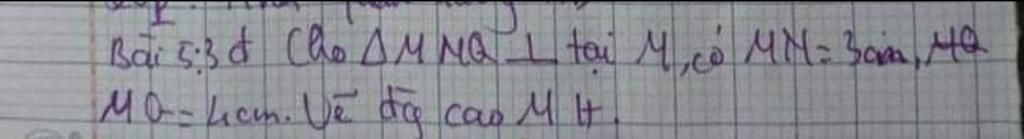 Bài 5:3đ Cho ΔMNQ ⊥ tại M, có MN = 3cm,
MQ = 4cm. Vẽ đg cao MH.